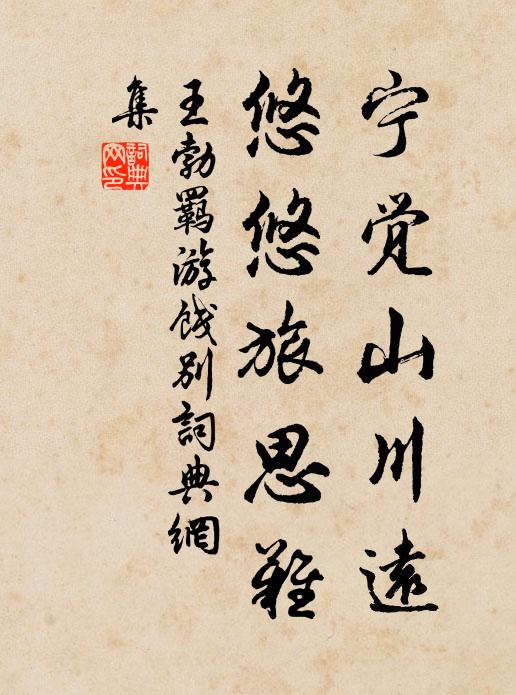 宁觉山川遠
悠悠旅思難
王勃羁游餞别詞典網
集
詞典網印